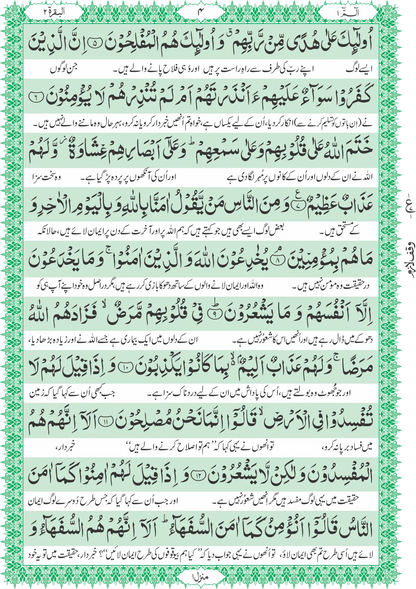 الٓمّٓ ١
۴
البقرۃ ۲
اُولٰٓىِٕكَ عَلٰى هُدًى مِّنْ رَّبِّهِمْ ۙ وَ اُولٰٓىِٕكَ هُمُ الْمُفْلِحُوْنَ ۝۵ اِنَّ الَّذِيْنَ
ایسے لوگ اپنے رب کی طرف سے راہِ راست پر ہیں اور وہی فلاح پانے والے ہیں۔ جن لوگوں
كَفَرُوْا سَوَآءٌ عَلَيْهِمْ ءَاَنْذَرْتَهُمْ اَمْ لَمْ تُنْذِرْهُمْ لَا يُؤْمِنُوْنَ ۝۶
نے (ان باتوں کو تسلیم کرنے سے) انکار کردیا، اُن کے لیے یکساں ہے، خواہ تم اُنھیں خبردار کرو یا نہ کرو، بہرحال وہ ماننے والے نہیں ہیں۔
خَتَمَ اللّٰهُ عَلٰى قُلُوْبِهِمْ وَ عَلٰى سَمْعِهِمْ ؕ وَ عَلٰٓى اَبْصَارِهِمْ غِشَاوَةٌ ؗ وَّ لَهُمْ
اللہ نے ان کے دلوں اور اُن کے کانوں پر مُہر لگادی ہے اور اُن کی آنکھوں پر پردہ پڑ گیا ہے۔ وہ سخت سزا
عَذَابٌ عَظِيْمٌ ۝۷ وَ مِنَ النَّاسِ مَنْ يَّقُوْلُ اٰمَنَّا بِاللّٰهِ وَ بِالْيَوْمِ الْاٰخِرِ وَ
کے مستحق ہیں۔ بعض لوگ ایسے بھی ہیں جو کہتے ہیں کہ ہم اللہ پر اور آخرت کے دن پر ایمان لائے ہیں، حالانکہ
مَا هُمْ بِمُؤْمِنِيْنَ ۝۸ يُخٰدِعُوْنَ اللّٰهَ وَ الَّذِيْنَ اٰمَنُوْا ۚ وَ مَا يَخْدَعُوْنَ
درحقیقت وہ مومن نہیں ہیں۔ وہ اللہ اور ایمان لانے والوں کے ساتھ دھوکا بازی کررہے ہیں، مگر دراصل وہ خود اپنے آپ ہی کو
اِلَّاۤ اَنْفُسَهُمْ وَ مَا يَشْعُرُوْنَ ۝۹ فِيْ قُلُوْبِهِمْ مَّرَضٌ ۙ فَزَادَهُمُ اللّٰهُ
دھوکے میں ڈال رہے ہیں اور انھیں اس کا شعور نہیں ہے۔ ان کے دلوں میں ایک بیماری ہے جسے اللہ نے اور زیادہ بڑھادیا،
مَرَضًا ۚ وَ لَهُمْ عَذَابٌ اَلِيْمٌۢ ۙ۬ بِمَا كَانُوْا يَكْذِبُوْنَ ۝۱۰ وَ اِذَا قِيْلَ لَهُمْ لَا
اور جو جھوٹ وہ بولتے ہیں، اُس کی پاداش میں ان کے لیے دردناک سزا ہے۔ جب کبھی اُن سے کہا گیا کہ زمین
تُفْسِدُوْا فِي الْاَرْضِ ۙ قَالُوْۤا اِنَّمَا نَحْنُ مُصْلِحُوْنَ ۝۱۱ اَلَاۤ اِنَّهُمْ هُمُ
میں فساد برپا نہ کرو، تو انھوں نے یہی کہا کہ ”ہم تو اصلاح کرنے والے ہیں“ خبردار،
الْمُفْسِدُوْنَ وَ لٰكِنْ لَّا يَشْعُرُوْنَ ۝۱۲ وَ اِذَا قِيْلَ لَهُمْ اٰمِنُوْا كَمَاۤ اٰمَنَ
حقیقت میں یہی لوگ مفسد ہیں مگر انھیں شعور نہیں ہے۔ اور جب اُن سے کہا گیا کہ جس طرح دُوسرے لوگ ایمان
النَّاسُ قَالُوْۤا اَنُؤْمِنُ كَمَاۤ اٰمَنَ السُّفَهَآءُ ؕ اَلَاۤ اِنَّهُمْ هُمُ السُّفَهَآءُ وَ
لائے ہیں اُسی طرح تم بھی ایمان لاؤ، تو اُنھوں نے یہی جواب دیا کہ ”کیا ہم بیوقوفوں کی طرح ایمان لائیں“؟ خبردار، حقیقت میں تو یہ خود
وقف لازم
منزل ١